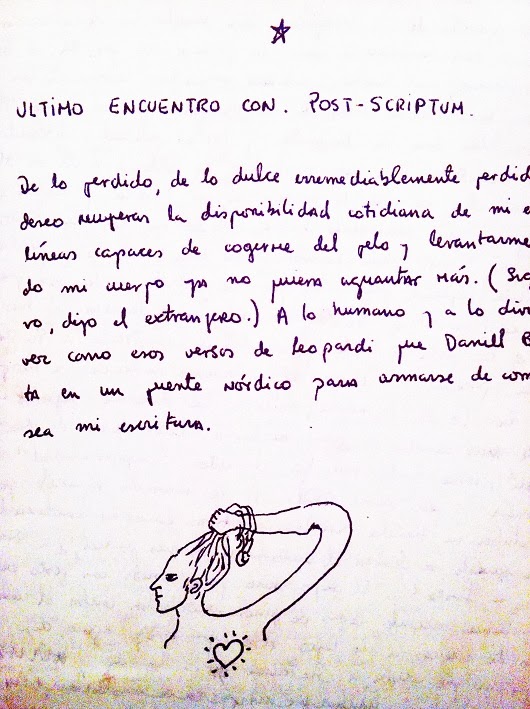 ULTIMO ENCUENTRO CON. POST-SCRIPTUM.
De lo perdido, de lo dulce irremediablemente perdid
deseo recuperar la disponibilidad cotidiana de mi e
líneas capaces de cogerme del pelo y levantarme
do mi cuerpo ya no quiera aguantar más. (Sig
vo, dijo el extranjero.) A lo humano y a lo divi
vez como esos versos de Leopardi que Daniel B
ta en un puente nórdico para armarse de cor
sea mi escritura.